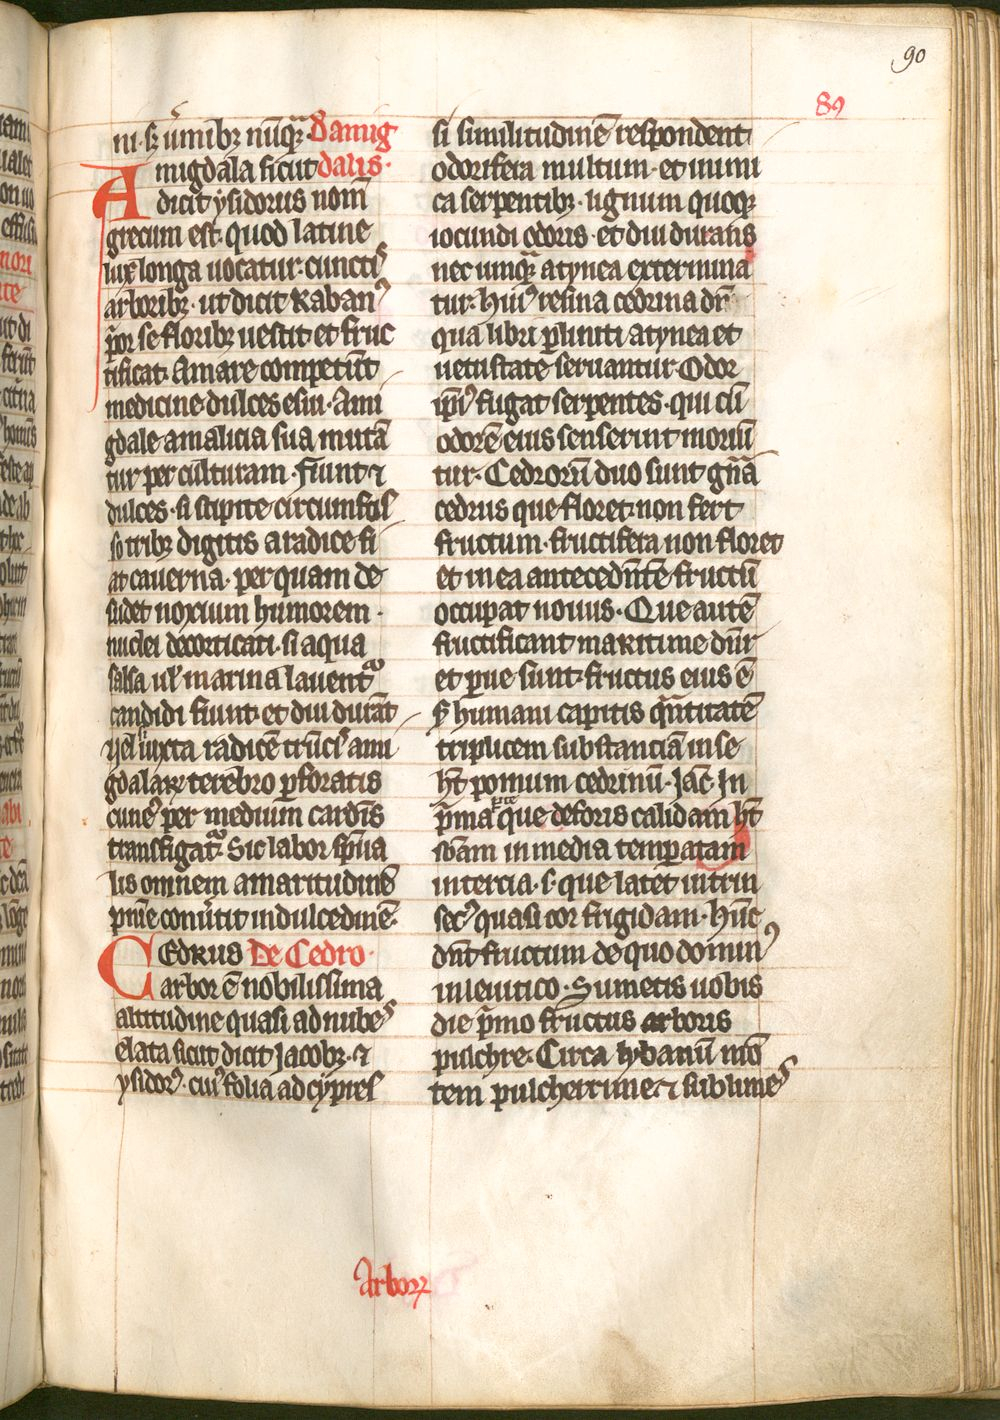 90
89
ni. sꝫ v̾mibꝫ nūqꝫ. D̄ amig
Amigdala sicut dalis.
dicit ysidorus nom̄
grecum est. quod latine
lux longa uocatur. cunctis
arboribꝫ. ut dicit Raban⁹
p̄or se floribꝫ uestit et fruc
tificat. Amare competūt
medicine dulces esui. Ami
gdale a malicia sua mutā
tur per culturam. fiunt ⁊
dulces. si stipite circumfos
so tribꝫ digitis a radice fi
at cauerna. per quam de
sudet noxium humorem.
nuclei decorticati. si aqua
salsa ul̄ marina lauentᷣ
candidi fiunt. et diu durāt
iuxta radicē trūci ami
gdalaꝝ terebro ꝑforatis
cune⁹ per medium cardīs
transfigatᷣ. Sic labor sp̄ua
lis omnem amaritudinē
pnīe conūtit in dulcedinē.
CEDRUS De Cedro.
arbor ē nobilissima
altitudine quasi ad nubes
elata sicut dicit Jacobꝫ. ⁊
ysidor⁹. cui⁹ folia ad cypres
si similitudinē respondent
odorifera multum. et inimi
ca serpentibꝫ. lignum quoqꝫ
iocundi odoris. et diu durans
nec umqᷓ a tynea extermina
tur. hui⁹ resina cedrina dr̄
qua libri ꝑliniti a tynea et
uetustate seruantur. Odor
ip̄i⁹ fugat serpentes. qui cū
odorē eius senserint moriū
tur. Cedrorū duo sunt gn̄a
cedrus que floret. non fert
fructum. fructifera non floret
et in ea antecedn̄tē fructū
occupat nouus. Que autē
fructificant maritime dn̄r
et parue sunt. fructus eius ē
humani capitis qᷓntitatē
triplicem substanciā in se
hn̄t pomum cedrinū. Jac̄. In
p̄ma parte que deforis calidam hn̄t
sb̄am in media temperatam
in tercia .s. que latet intrin
sec⁹ quasi cor frigidam. hūc
dn̄t fructum de quo domin⁹
in leuitico. Sumetis uobis
die p̄mo fructus arboris
pulchre. Circa lybanū mō
tem pulcherrime ⁊ sublimes
Arboꝝ